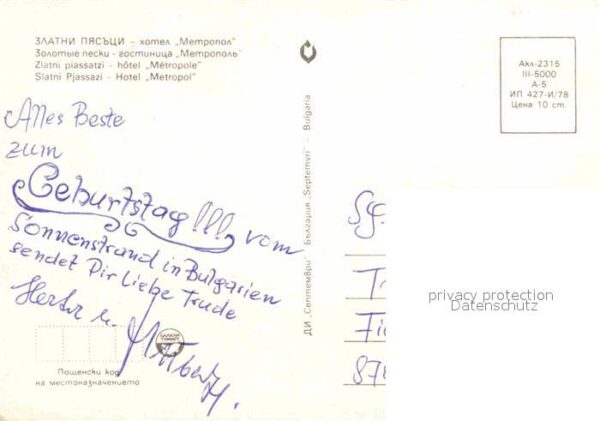 ЗЛАТНИ ПЯСЪЦИ – хотел „Метропол"
Золотые пески - гостиница „Метрополь"
Zlatni piassatzi - hôtel „Métropole"
Slatni Pjassazi - Hotel „Metropol"
Alles Beste
zum
Geburtstag!!! vom
Sonnenstrand in Bulgarien
sendet Dir Liebe Trude
u.
Пощенски код
на местоназначението
ДИ „Септември" България „Septemvri" Bulgaria
Акл-2315
III-5000
А-5
ИП 427-И/78
Цена 10 ст.
privacy protection
Datenschutz